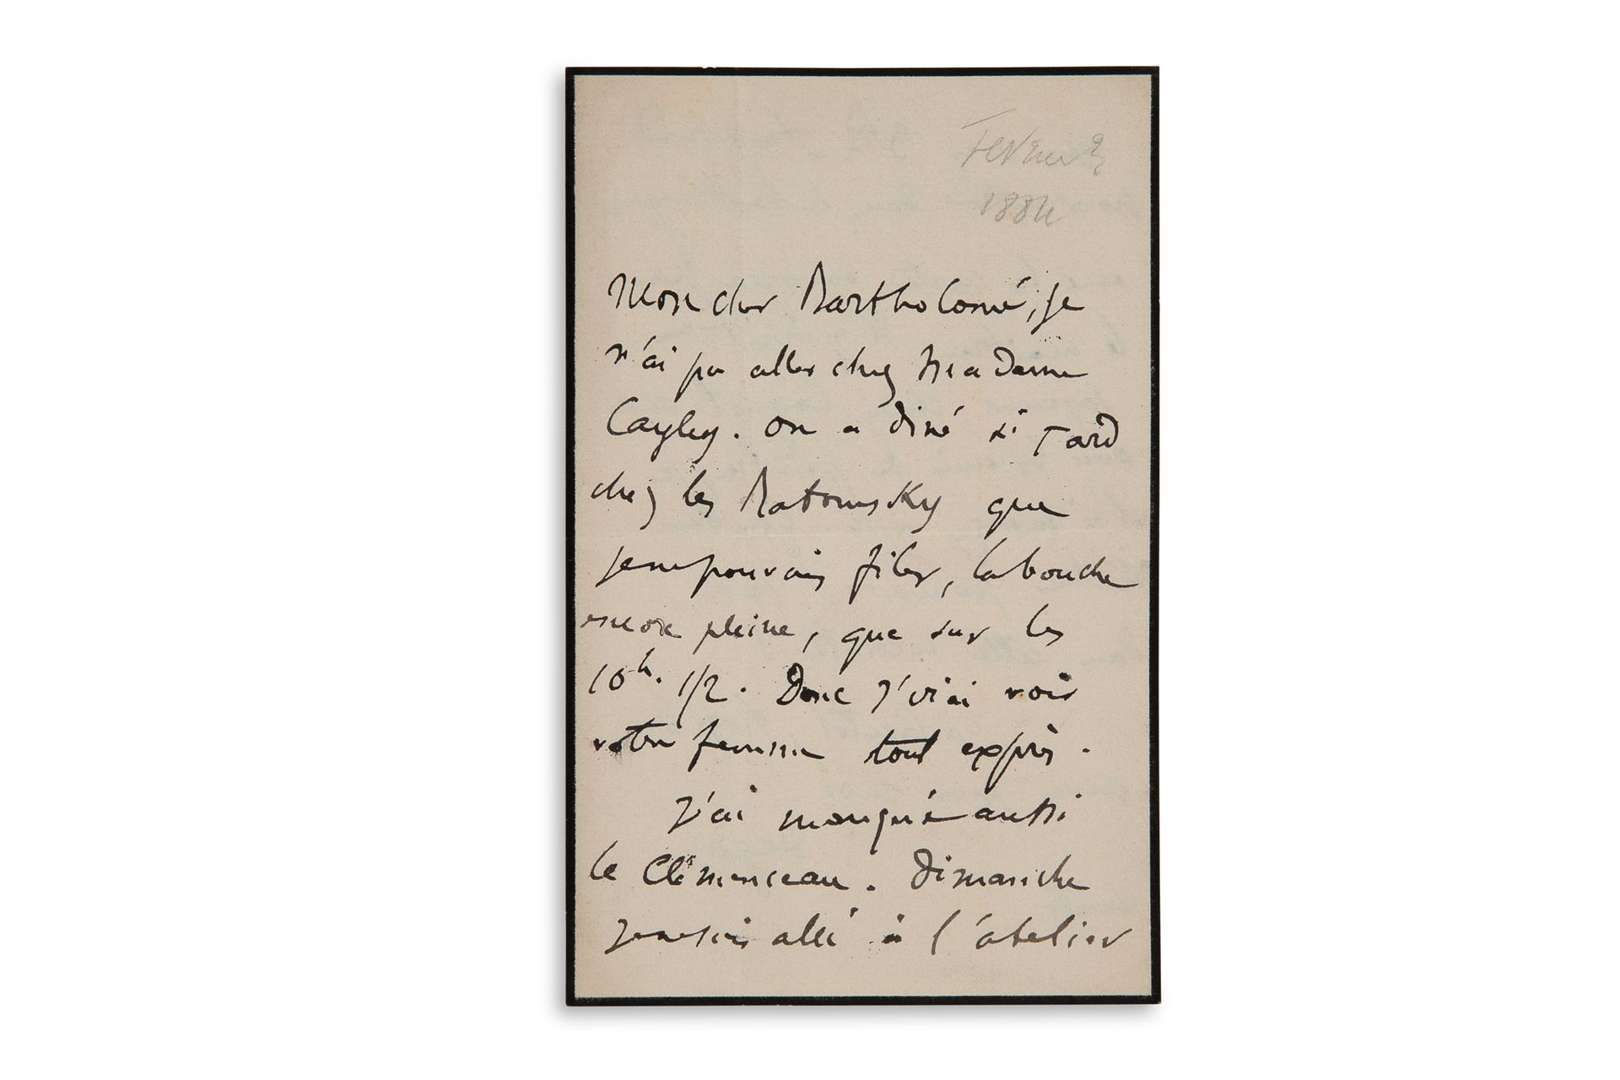 Fevrier
1884
Mon cher Bartholomé, je
n'ai pu aller chez Madame
Cayley. On a diné si tard
chez les Ratomsky que
je ne pouvais filer, la bouche
encore pleine, que sur les
10h. 1/2. Donc j'irai voir
votre femme tout exprès.
J'ai manqué aussi
le Clémenceau. Dimanche
je ne suis allé à l'atelier